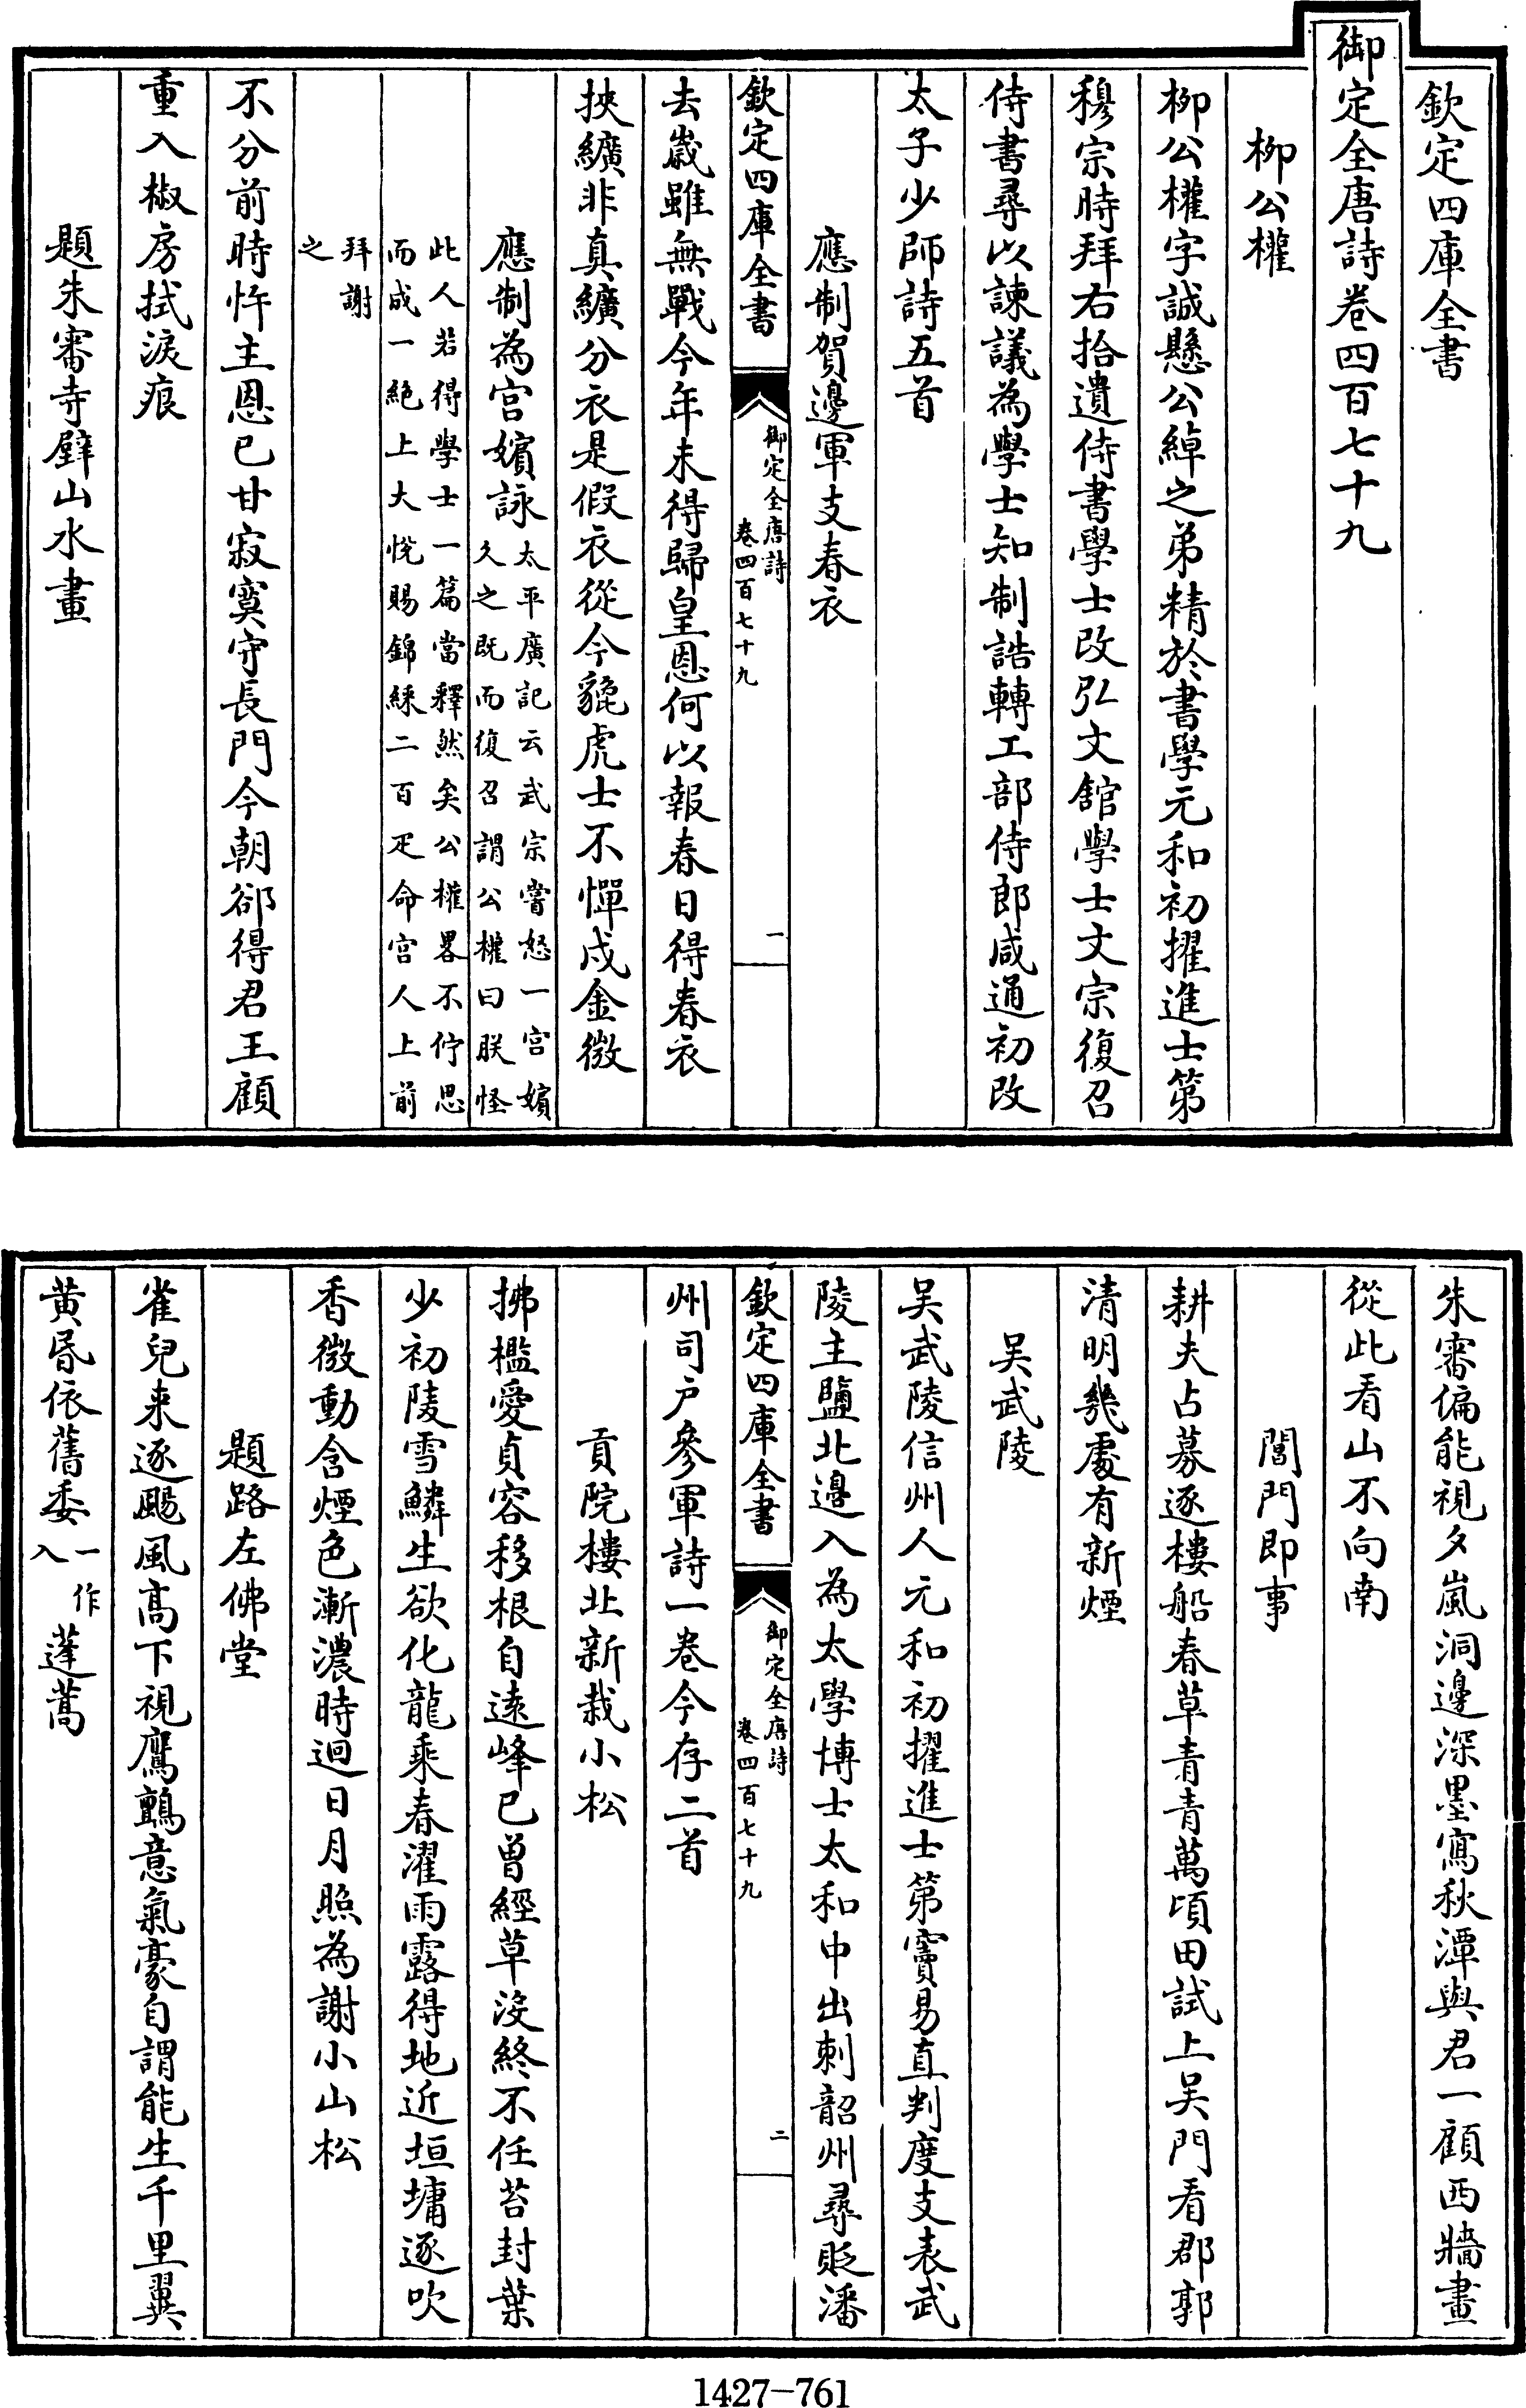 欽定四庫全書
御定全唐詩卷四百七十九
柳公權
柳公權字誠懸公綽之弟精於書學元和初擢進士第
穆宗時拜右拾遺侍書學士改弘文館學士文宗復召
侍書尋以諫議為學士知制誥轉工部侍郎咸通初改
太子少師詩五首
應制賀邊軍支春衣
欽定四庫全書
御定全唐詩
卷四百七十九
一
去歲雖無戰今年未得歸皇恩何以報春日得春衣
挾纊非真纊分衣是假衣從今貔虎士不憚戍金微
應制為宮嬪詠
太平廣記云武宗嘗怒一宮嬪
久之既而復召謂公權曰朕怪
此人若得學士一篇當釋然矣公權畧不佇思
而成一絶上大悅賜錦綵二百疋命宮人上前
拜謝
之
不分前時忤主恩已甘寂寞守長門今朝郤得君王顧
重入椒房拭淚痕
題朱審寺壁山水畫
朱審偏能視夕嵐洞邊深墨寫秋潭與君一顧西牆畫
從此看山不向南
閶門即事
耕夫占募逐樓船春草青青萬頃田試上吳門看郡郭
清明幾處有新煙
吳武陵
吳武陵信州人元和初擢進士第竇易直判度支表武
陵主鹽北邊入為太學博士太和中出刺韶州尋貶潘
欽定四庫全書
御定全唐詩
卷四百七十九
二
州司户參軍詩一卷今存二首
貢院樓北新栽小松
拂檻愛貞容移根自遠峰已曾經草沒終不任苔封葉
少初陵雪鱗生欲化龍乘春濯雨露得地近垣墉逐吹
香微動含煙色漸濃時迴日月照為謝小山松
題路左佛堂
雀兒來逐颺風高下視鷹鸇意氣豪自謂能生千里翼
黄昏依舊委
一作
入
蓬蒿
1427-761